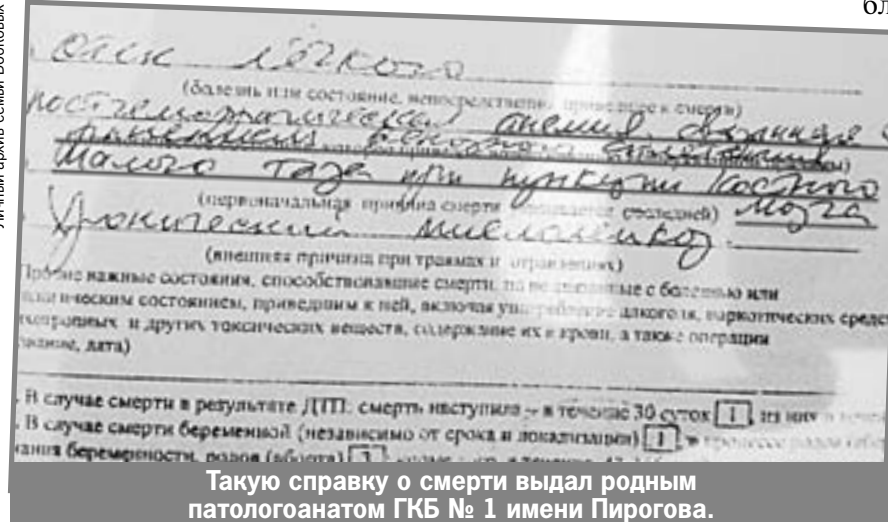 бл
Личный архив семьи
отек лёгкого
(болезнь или состояние, непосредственно приведшее к смерти)
постгеморрагическая анемия, связанная с
ранением
малого таза при пункции костного
(первоначальная причина смерти указывается последней) мозга
Хронический миелолейкоз.
(внешняя причина при травмах и отравлениях)
Прочие важные состояния, способствовавшие смерти, но не связанные с болезнью или
патологическим состоянием, приведшим к ней, включая употребление алкоголя, наркотических средств
психотропных и других токсических веществ, содержание их в крови, а также операции
дата)
В случае смерти в результате ДТП: смерть наступила – в течение 30 суток 1, из них в
В случае смерти беременной (независимо от срока и локализации) 1, в процессе родов
беременности, родов (аборта) 3
Такую справку о смерти выдал родным
патологоанатом ГКБ № 1 имени Пирогова.